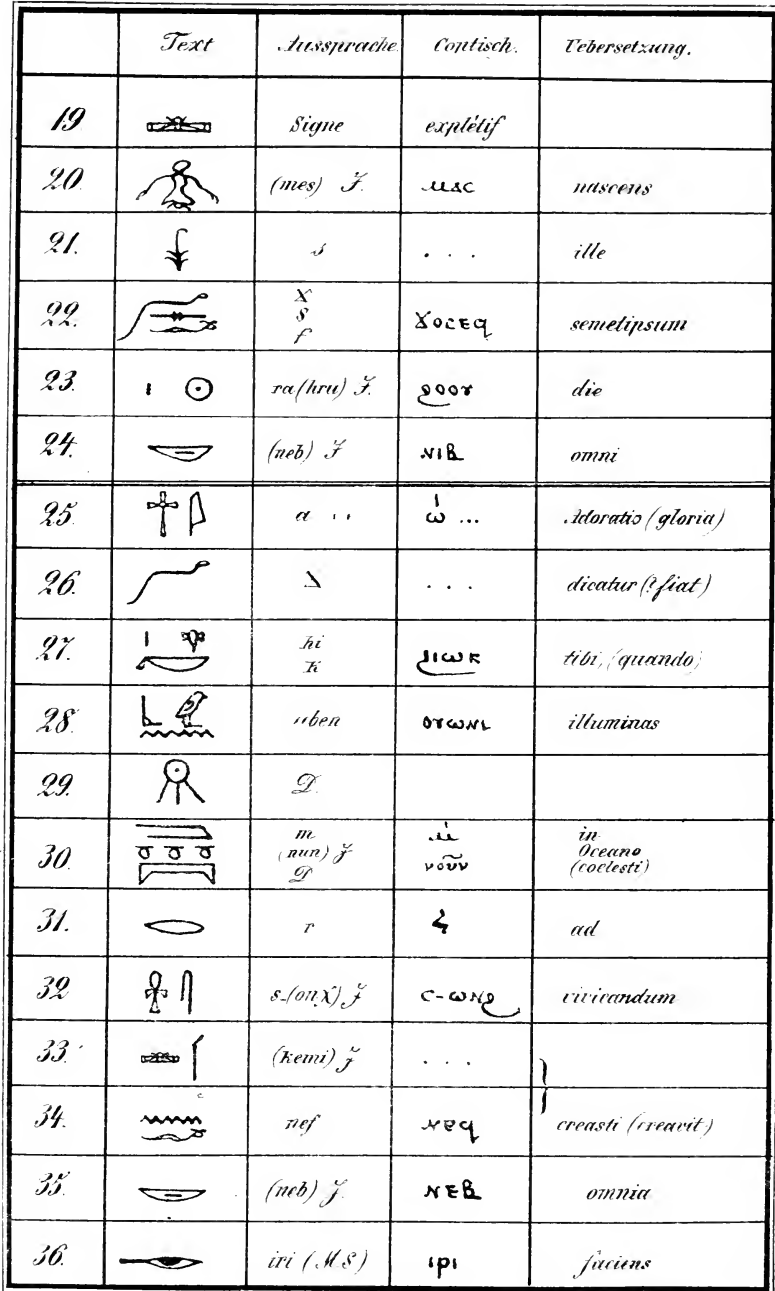 Text Aussprache. Coptisch. Uebersetzung.
19 Signe explétif
20. (mes) J. ⲙⲁⲥ nascens
21. s . . . ille
22. X s f ϫⲟⲥⲉϥ semetipsum
23. ra(hru) J. ϩⲟⲟⲩ die
24. (neb) J ⲛⲓⲃ omni
25. a . . ⲱ̀ ... Adoratio (gloria)
26. . . . dicatur (? fiat)
27. hi K ϩⲓⲱⲕ tibi, (quando)
28. uben ⲟⲩⲱⲛⲓ illuminas
29. D.
30. m (nun) J D ⲙ̀ ⲛⲟⲩⲛ in Oceano (coelesti)
31. r ad
32 s-(onχ) J ⲥ-ⲱⲛϩ vivicandum
33. (Kemi) J . . .
34. nef ⲛⲉϥ creasti (creavit)
35. (neb) J. ⲛⲉⲃ omnia
36. iri (MS) ⲓⲣⲓ faciens